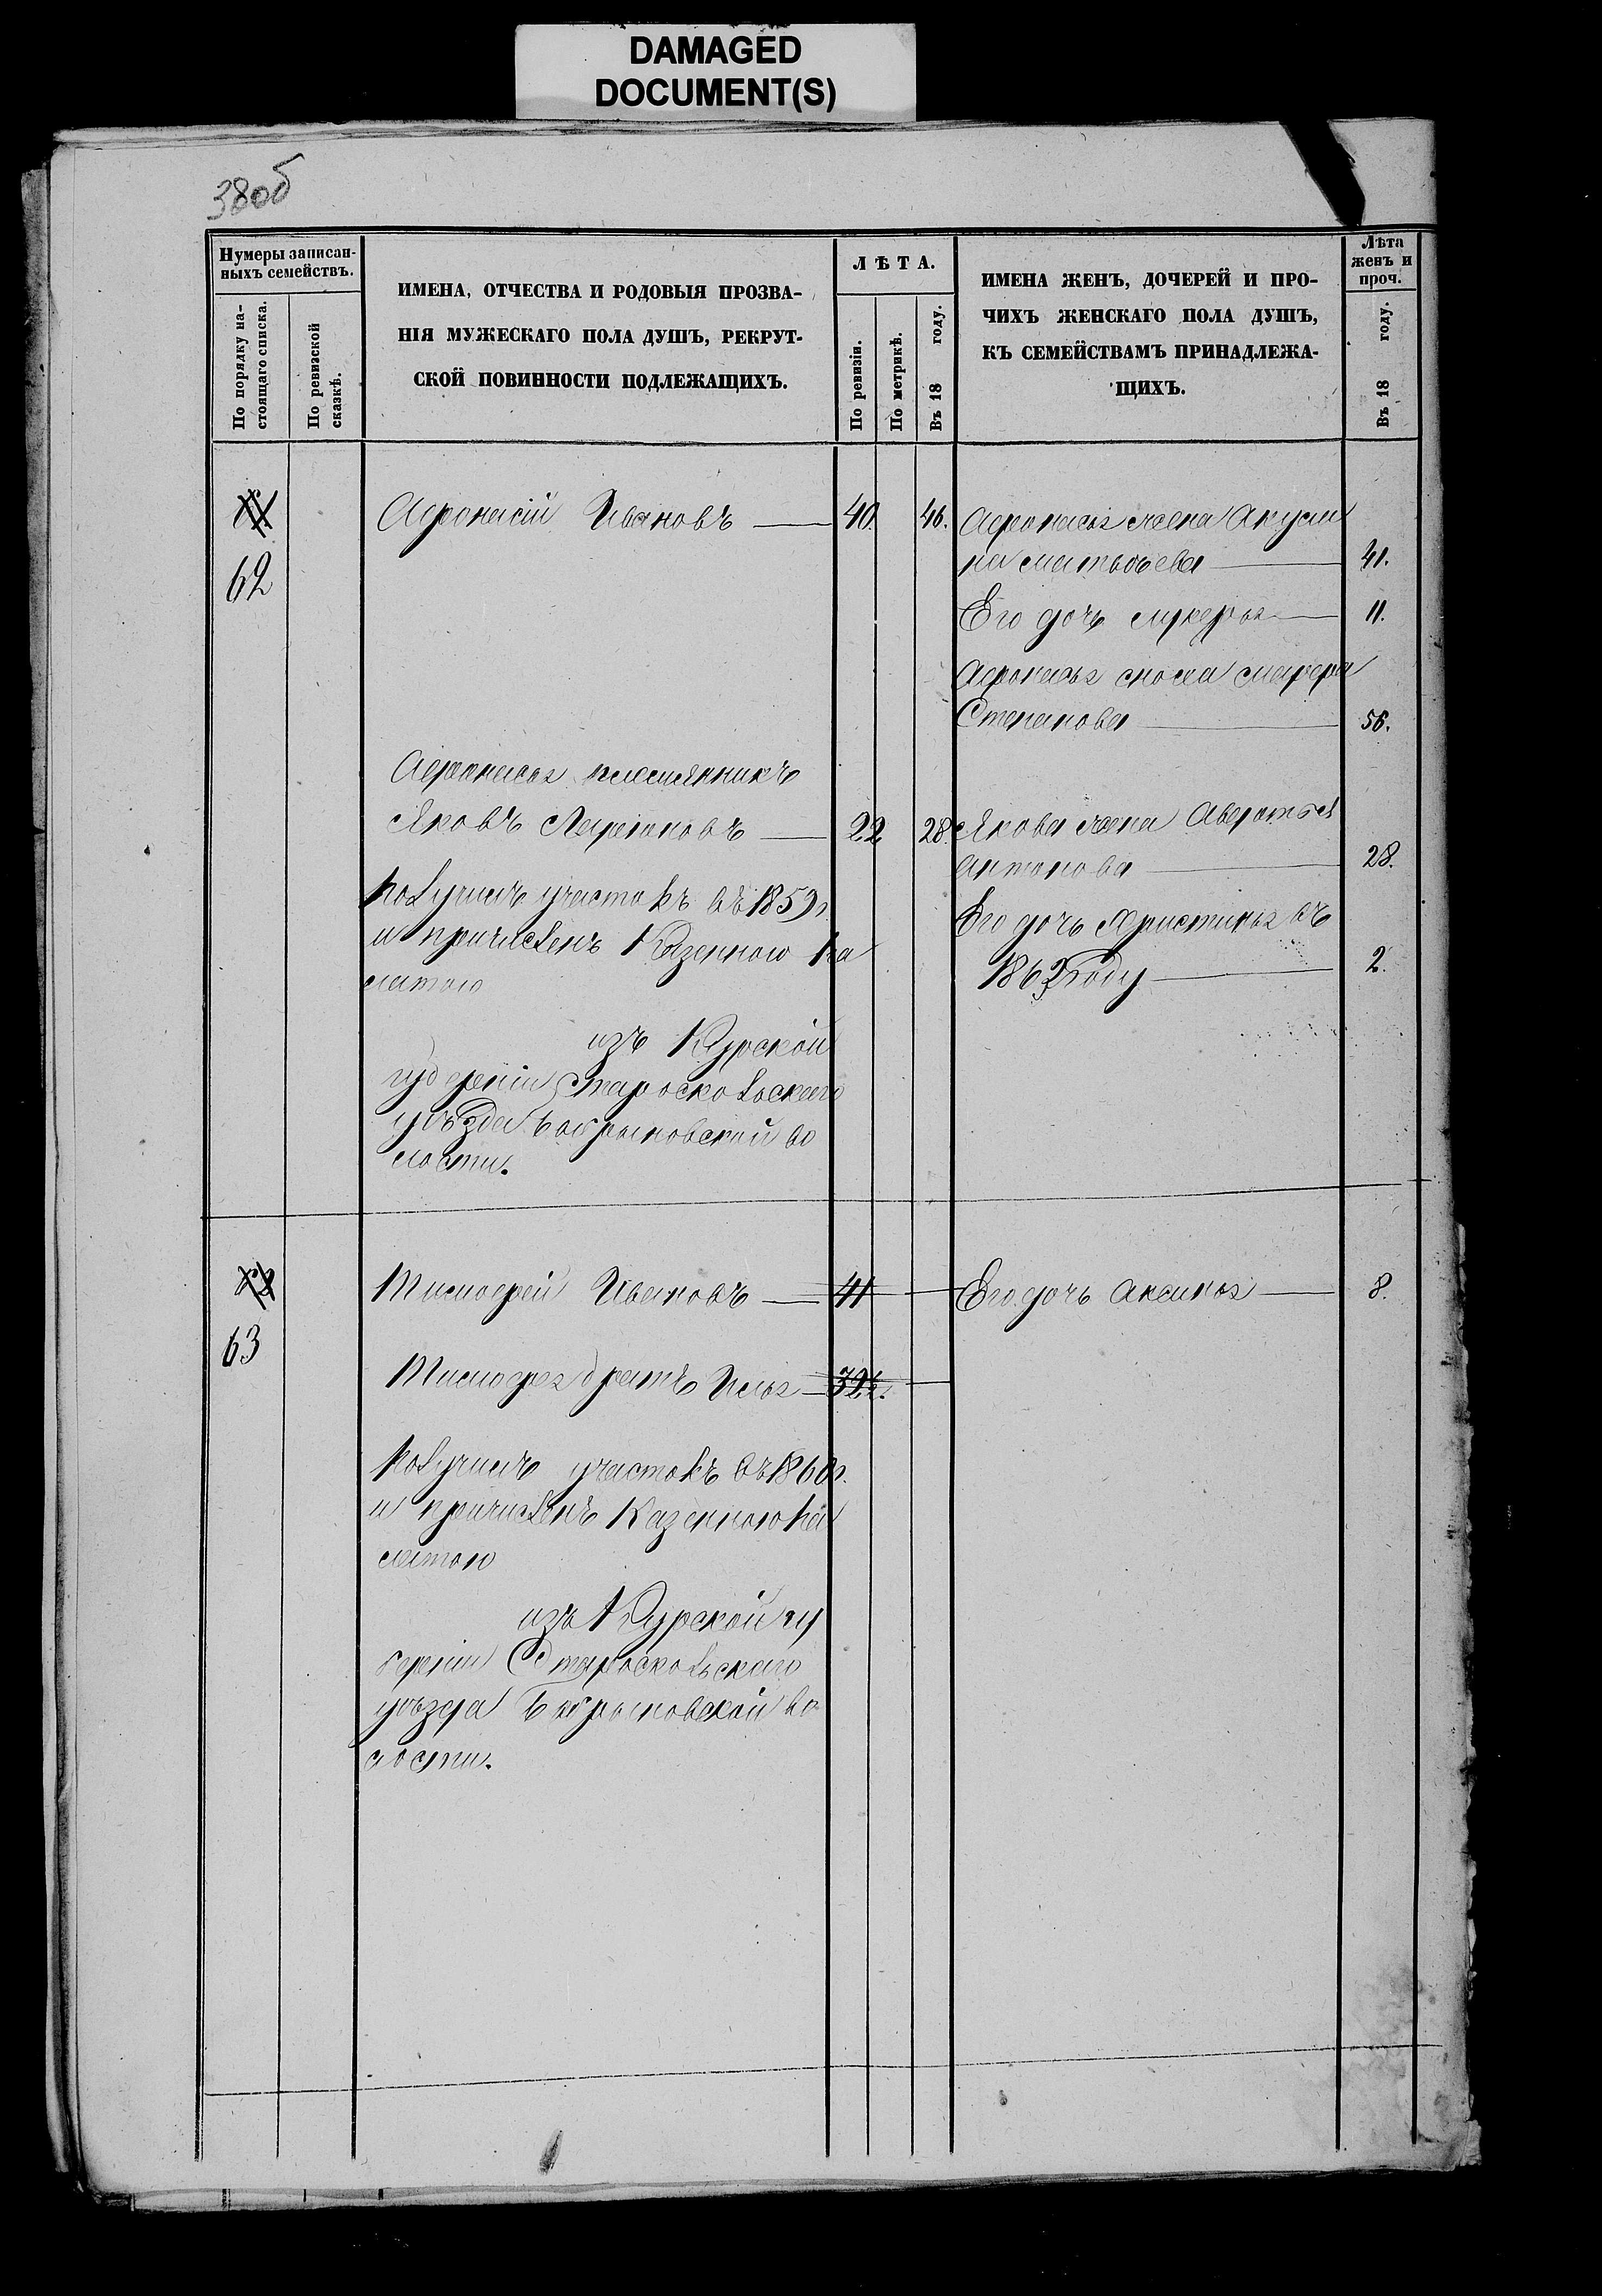 DAMAGED
DOCUMENT(S)
38об
Нумеры записан-
ныхъ семействъ.
По порядку на-
стоящаго списка.
По ревизской
сказкѣ.
ИМЕНА, ОТЧЕСТВА И РОДОВЫЯ ПРОЗВА-
НІЯ МУЖЕСКАГО ПОЛА ДУШЪ, РЕКРУТ-
СКОЙ ПОВИННОСТИ ПОДЛЕЖАЩИХЪ.
ЛѢТА.
По ревизіи.
По метрикѣ.
Въ 18 году.
ИМЕНА ЖЕНЪ, ДОЧЕРЕЙ И ПРО-
ЧИХЪ ЖЕНСКАГО ПОЛА ДУШЪ,
КЪ СЕМЕЙСТВАМЪ ПРИНАДЛЕЖА-
ЩИХЪ.
Лѣта
женъ и
проч.
Въ 18 году.
61
62
Афонасій Ивановъ 40. 46.
Афонасья жена Акули
на Матвѣева 41.
Его дочь Лукерья 11.
Афонасья сноха Марфа
Степанова 56.
Афонасья племянникъ
Яковъ Ларіоновъ 22 28.
Якова жена Авдотья
Антонова 28.
Его дочь Христинья въ
1862 году 2.
получилъ участокъ въ 1859 г.
и причисленъ Казенною па
латою
изъ Курской
губерніи Старооскольскаго
уѣзда во
лости.
62
63
Тимофей Ивановъ 41
Его дочь Аксинья 8.
Тимофея братъ Илья
получилъ участокъ въ 1860 г.
и причисленъ Казенною па
латою
изъ Курской гу
берніи Старооскольскаго
уѣзда во
лости.